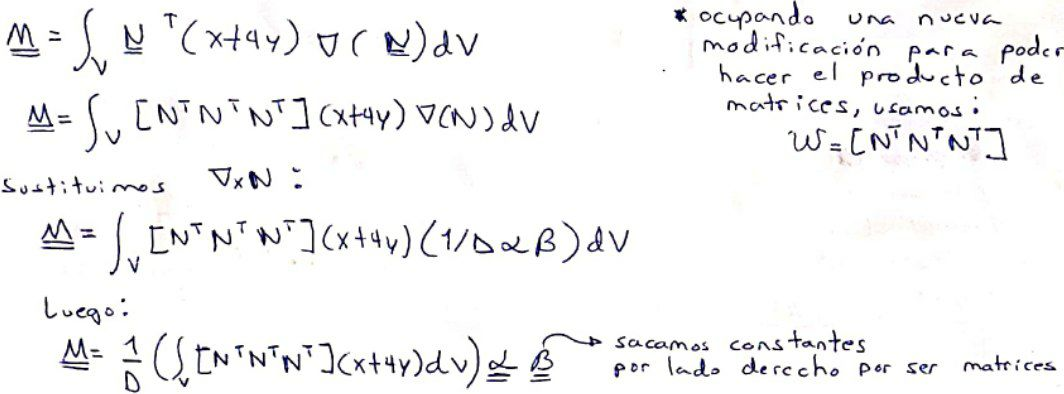 M = ∫_V N^T (x+4y) ∇(N) dV
* ocupando una nueva
modificación para poder
hacer el producto de
matrices, usamos:
W = [N^T N^T N^T]
M = ∫_V [N^T N^T N^T] (x+4y) ∇(N) dV
Sustituimos ∇xN :
M = ∫_V [N^T N^T N^T] (x+4y) (1/D α β) dV
Luego:
M = 1/D (∫_V [N^T N^T N^T] (x+4y) dV) α β → sacamos constantes
por lado derecho por ser matrices